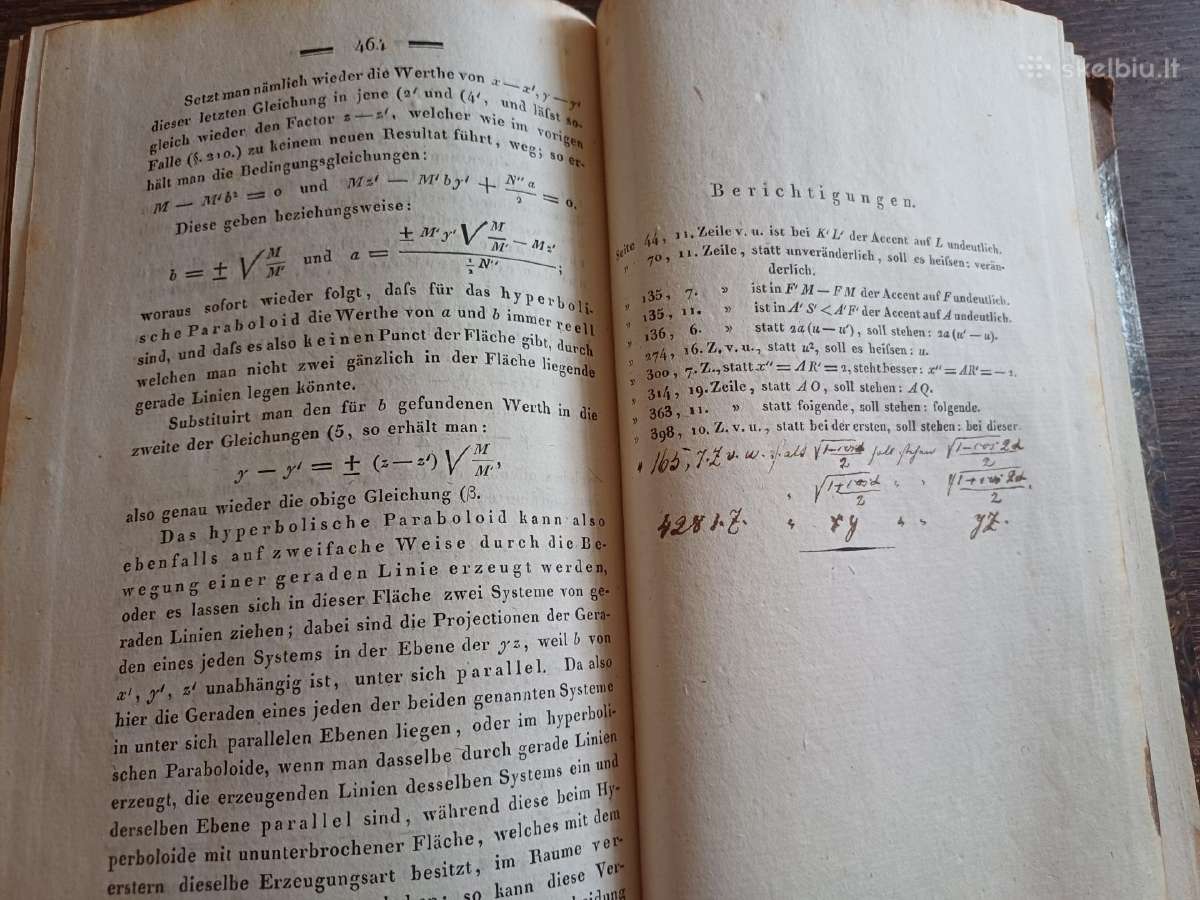 464
Setzt man nämlich wieder die Werthe von x — x', y — y'
dieser letzten Gleichung in jene (2' und (4', und läſst so-
gleich wieder den Factor z — z', welcher wie im vorigen
Falle (§. 210.) zu keinem neuen Resultat führt, weg; so er-
hält man die Bedingungsgleichungen:
M — M'b² = 0 und Mz' — M'by' + N''a/2 = 0.
Diese geben beziehungsweise:
b = ± √M/M' und a = ± M'y' √M/M' — Mz' / ½N'' ;
woraus sofort wieder folgt, daſs für das hyperboli-
sche Paraboloid die Werthe von a und b immer reell
sind, und daſs es also keinen Punct der Fläche gibt, durch
welchen man nicht zwei gänzlich in der Fläche liegende
gerade Linien legen könnte.
Substituirt man den für b gefundenen Werth in die
zweite der Gleichungen (5, so erhält man:
y — y' = ± (z — z') √M/M',
also genau wieder die obige Gleichung (β.
Das hyperbolische Paraboloid kann also
ebenfalls auf zweifache Weise durch die Be-
wegung einer geraden Linie erzeugt werden,
oder es lassen sich in dieser Fläche zwei Systeme von ge-
raden Linien ziehen; dabei sind die Projectionen der Gera-
den eines jeden Systems in der Ebene der yz, weil b von
x', y', z' unabhängig ist, unter sich parallel. Da also
hier die Geraden eines jeden der beiden genannten Systeme
in unter sich parallelen Ebenen liegen, oder im hyperboli-
schen Paraboloide, wenn man dasselbe durch gerade Linien
erzeugt, die erzeugenden Linien desselben Systems ein und
derselben Ebene parallel sind, während diese beim Hy-
perboloide mit ununterbrochener Fläche, welches mit dem
erstern dieselbe Erzeugungsart besitzt, im Raume ver-
so kann diese Ver-
skelbiu.lt
Berichtigungen.
Seite 44, 11. Zeile v. u. ist bei K'L' der Accent auf L undeutlich.
" 70, 11. Zeile, statt unveränderlich, soll es heiſsen: verän-
derlich.
" 135, 7. " ist in F'M — FM der Accent auf F undeutlich.
" 135, 11. " ist in A'S' < A'F der Accent auf A undeutlich.
" 136, 6. " statt 2a(u — u'), soll stehen: 2a(u' — u).
" 274, 16. Z. v. u., statt u², soll es heiſsen: u.
" 300, 7. Z., statt x'' = AR' = 2, steht besser: x'' = AR' = — 2.
" 314, 19. Zeile, statt AO, soll stehen: AQ.
" 363, 11. " statt foigende, soll stehen: folgende.
" 398, 10. Z. v. u., statt bei der ersten, soll stehen: bei dieser.
" 165, 7. Z v. u. statt √1-cosα/2 soll stehen √1-cos 2α/2
" √1+cosα/2 " " √1+cos 2α/2.
428 1. Z. " xy " " yz.